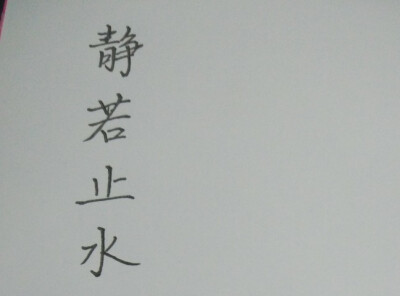 静若止水